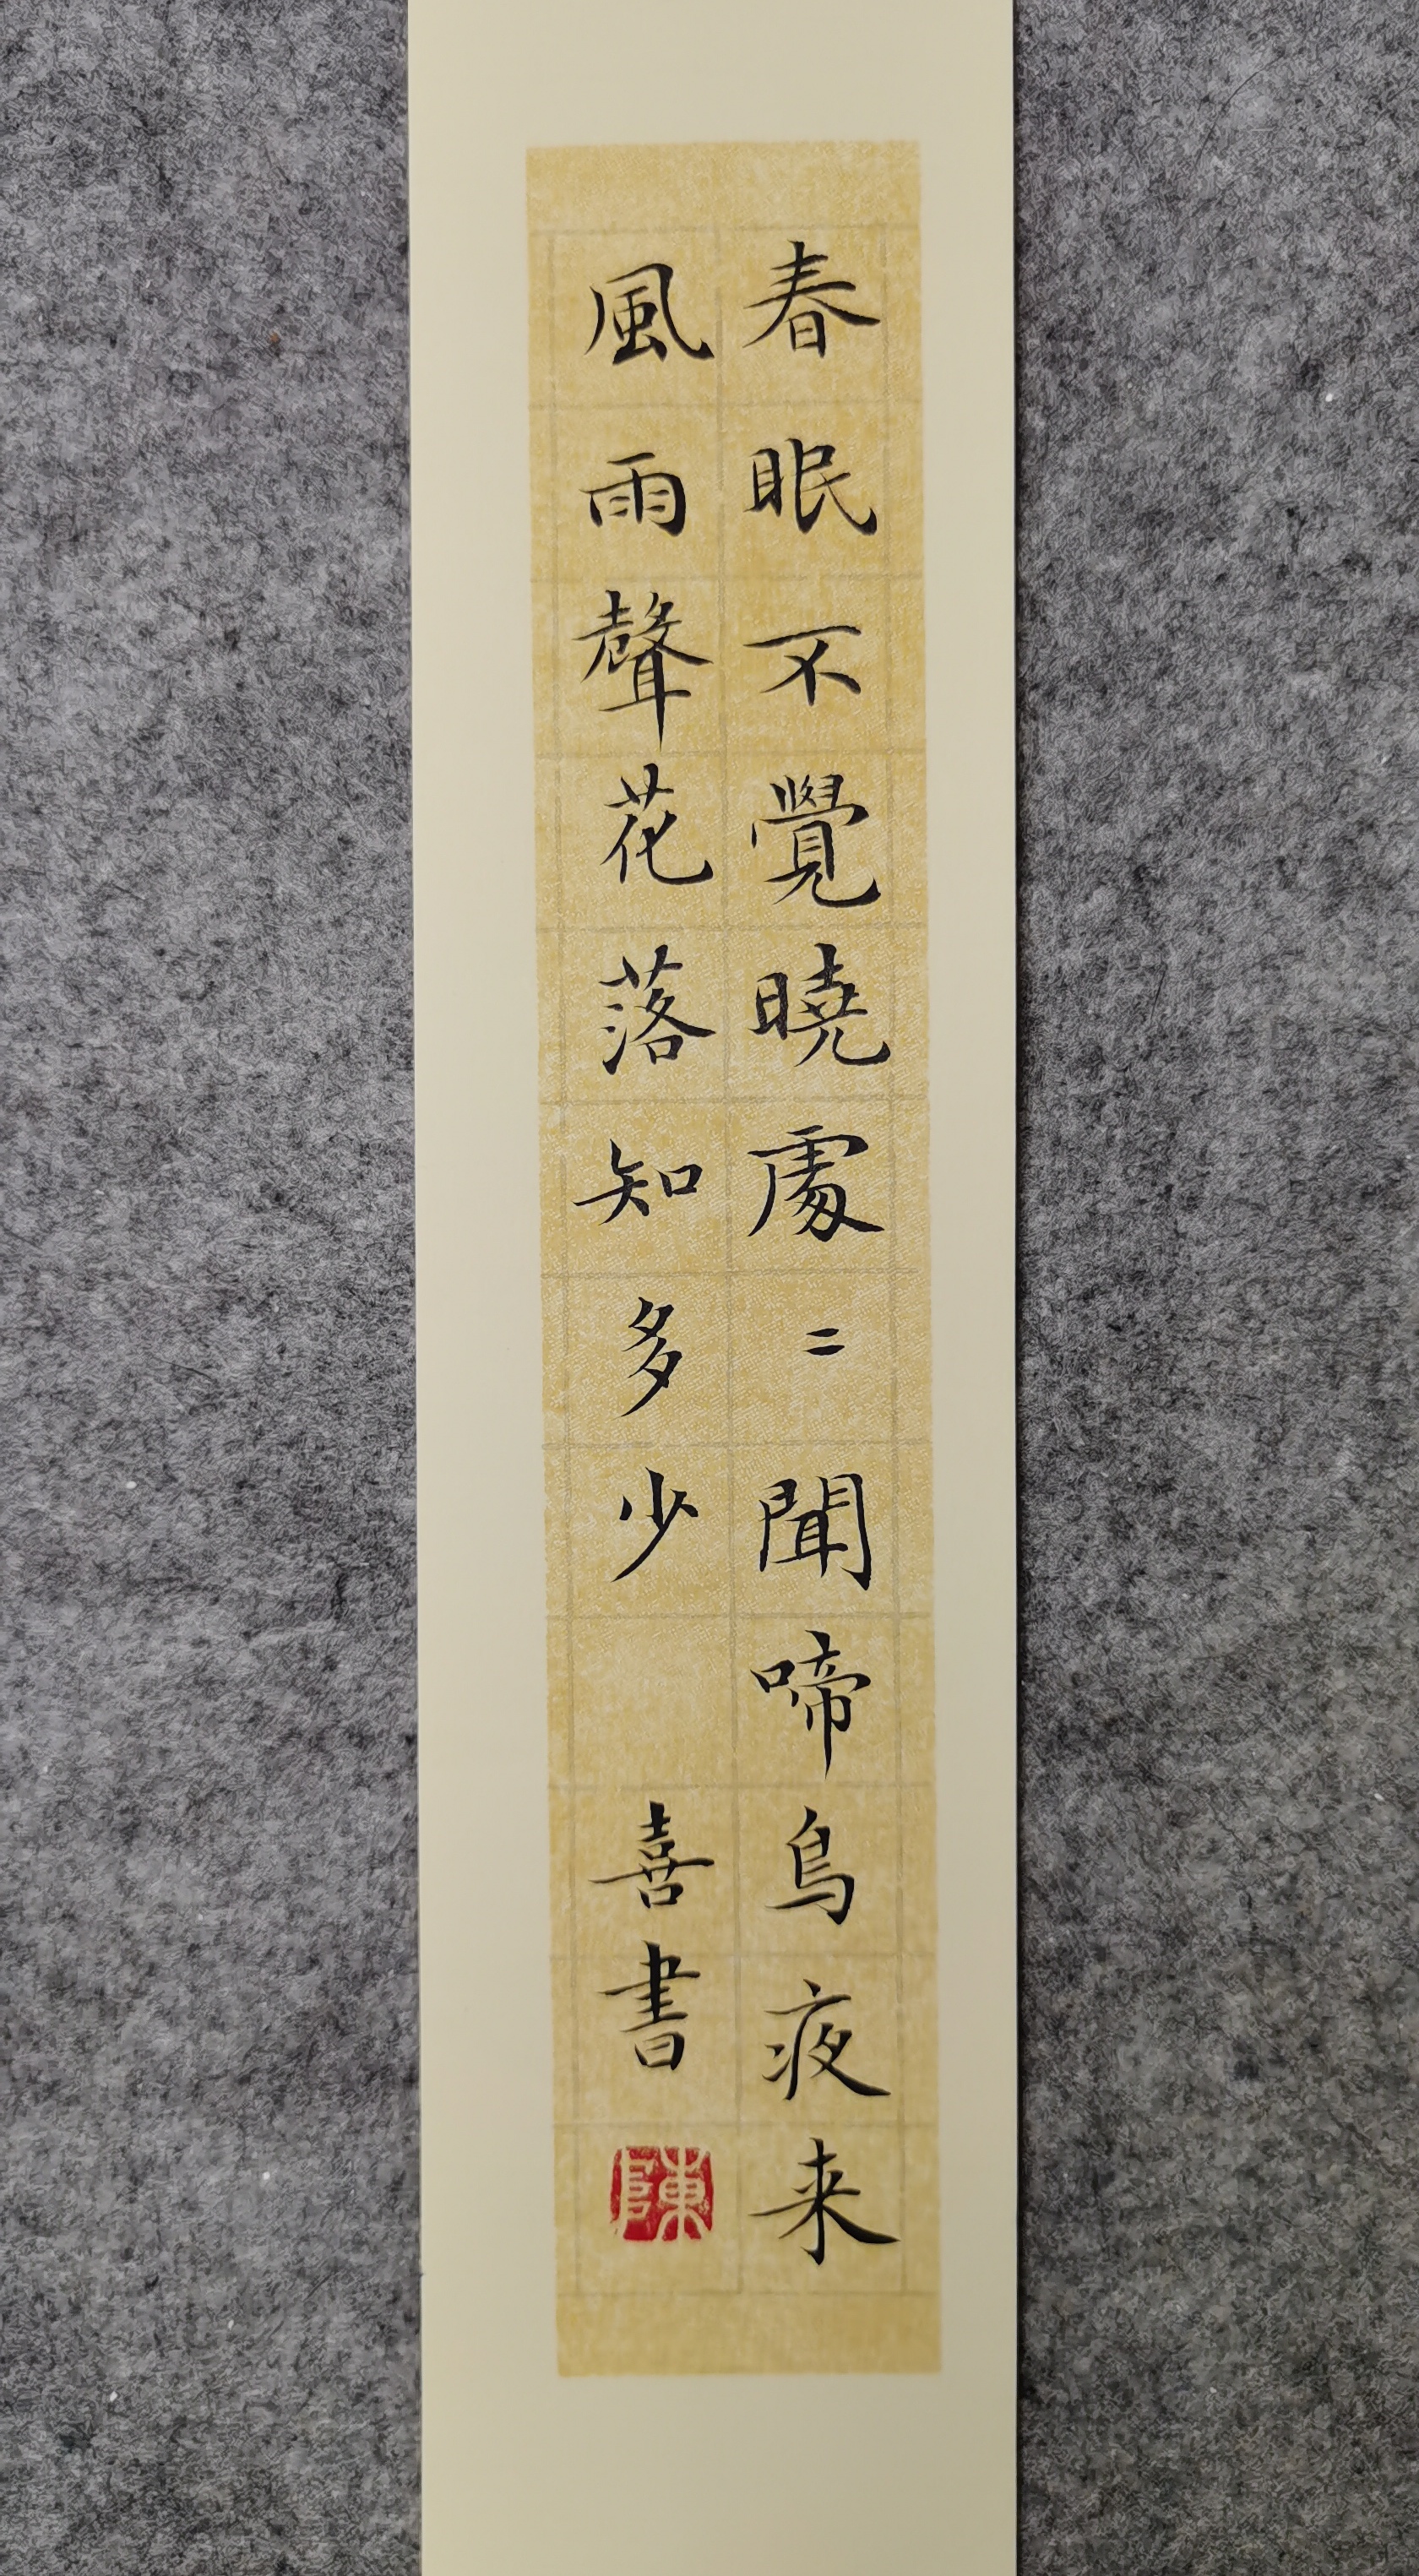 春眠不覺曉處二聞啼鳥夜来
風雨聲花落知多少 喜書
陳